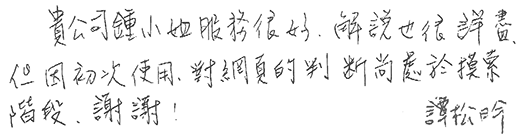 貴公司鍾小姐服務很好、解說也很詳盡、
但因初次使用、對網頁的判斷尚處於摸索
階段、謝謝！ 譚松昑